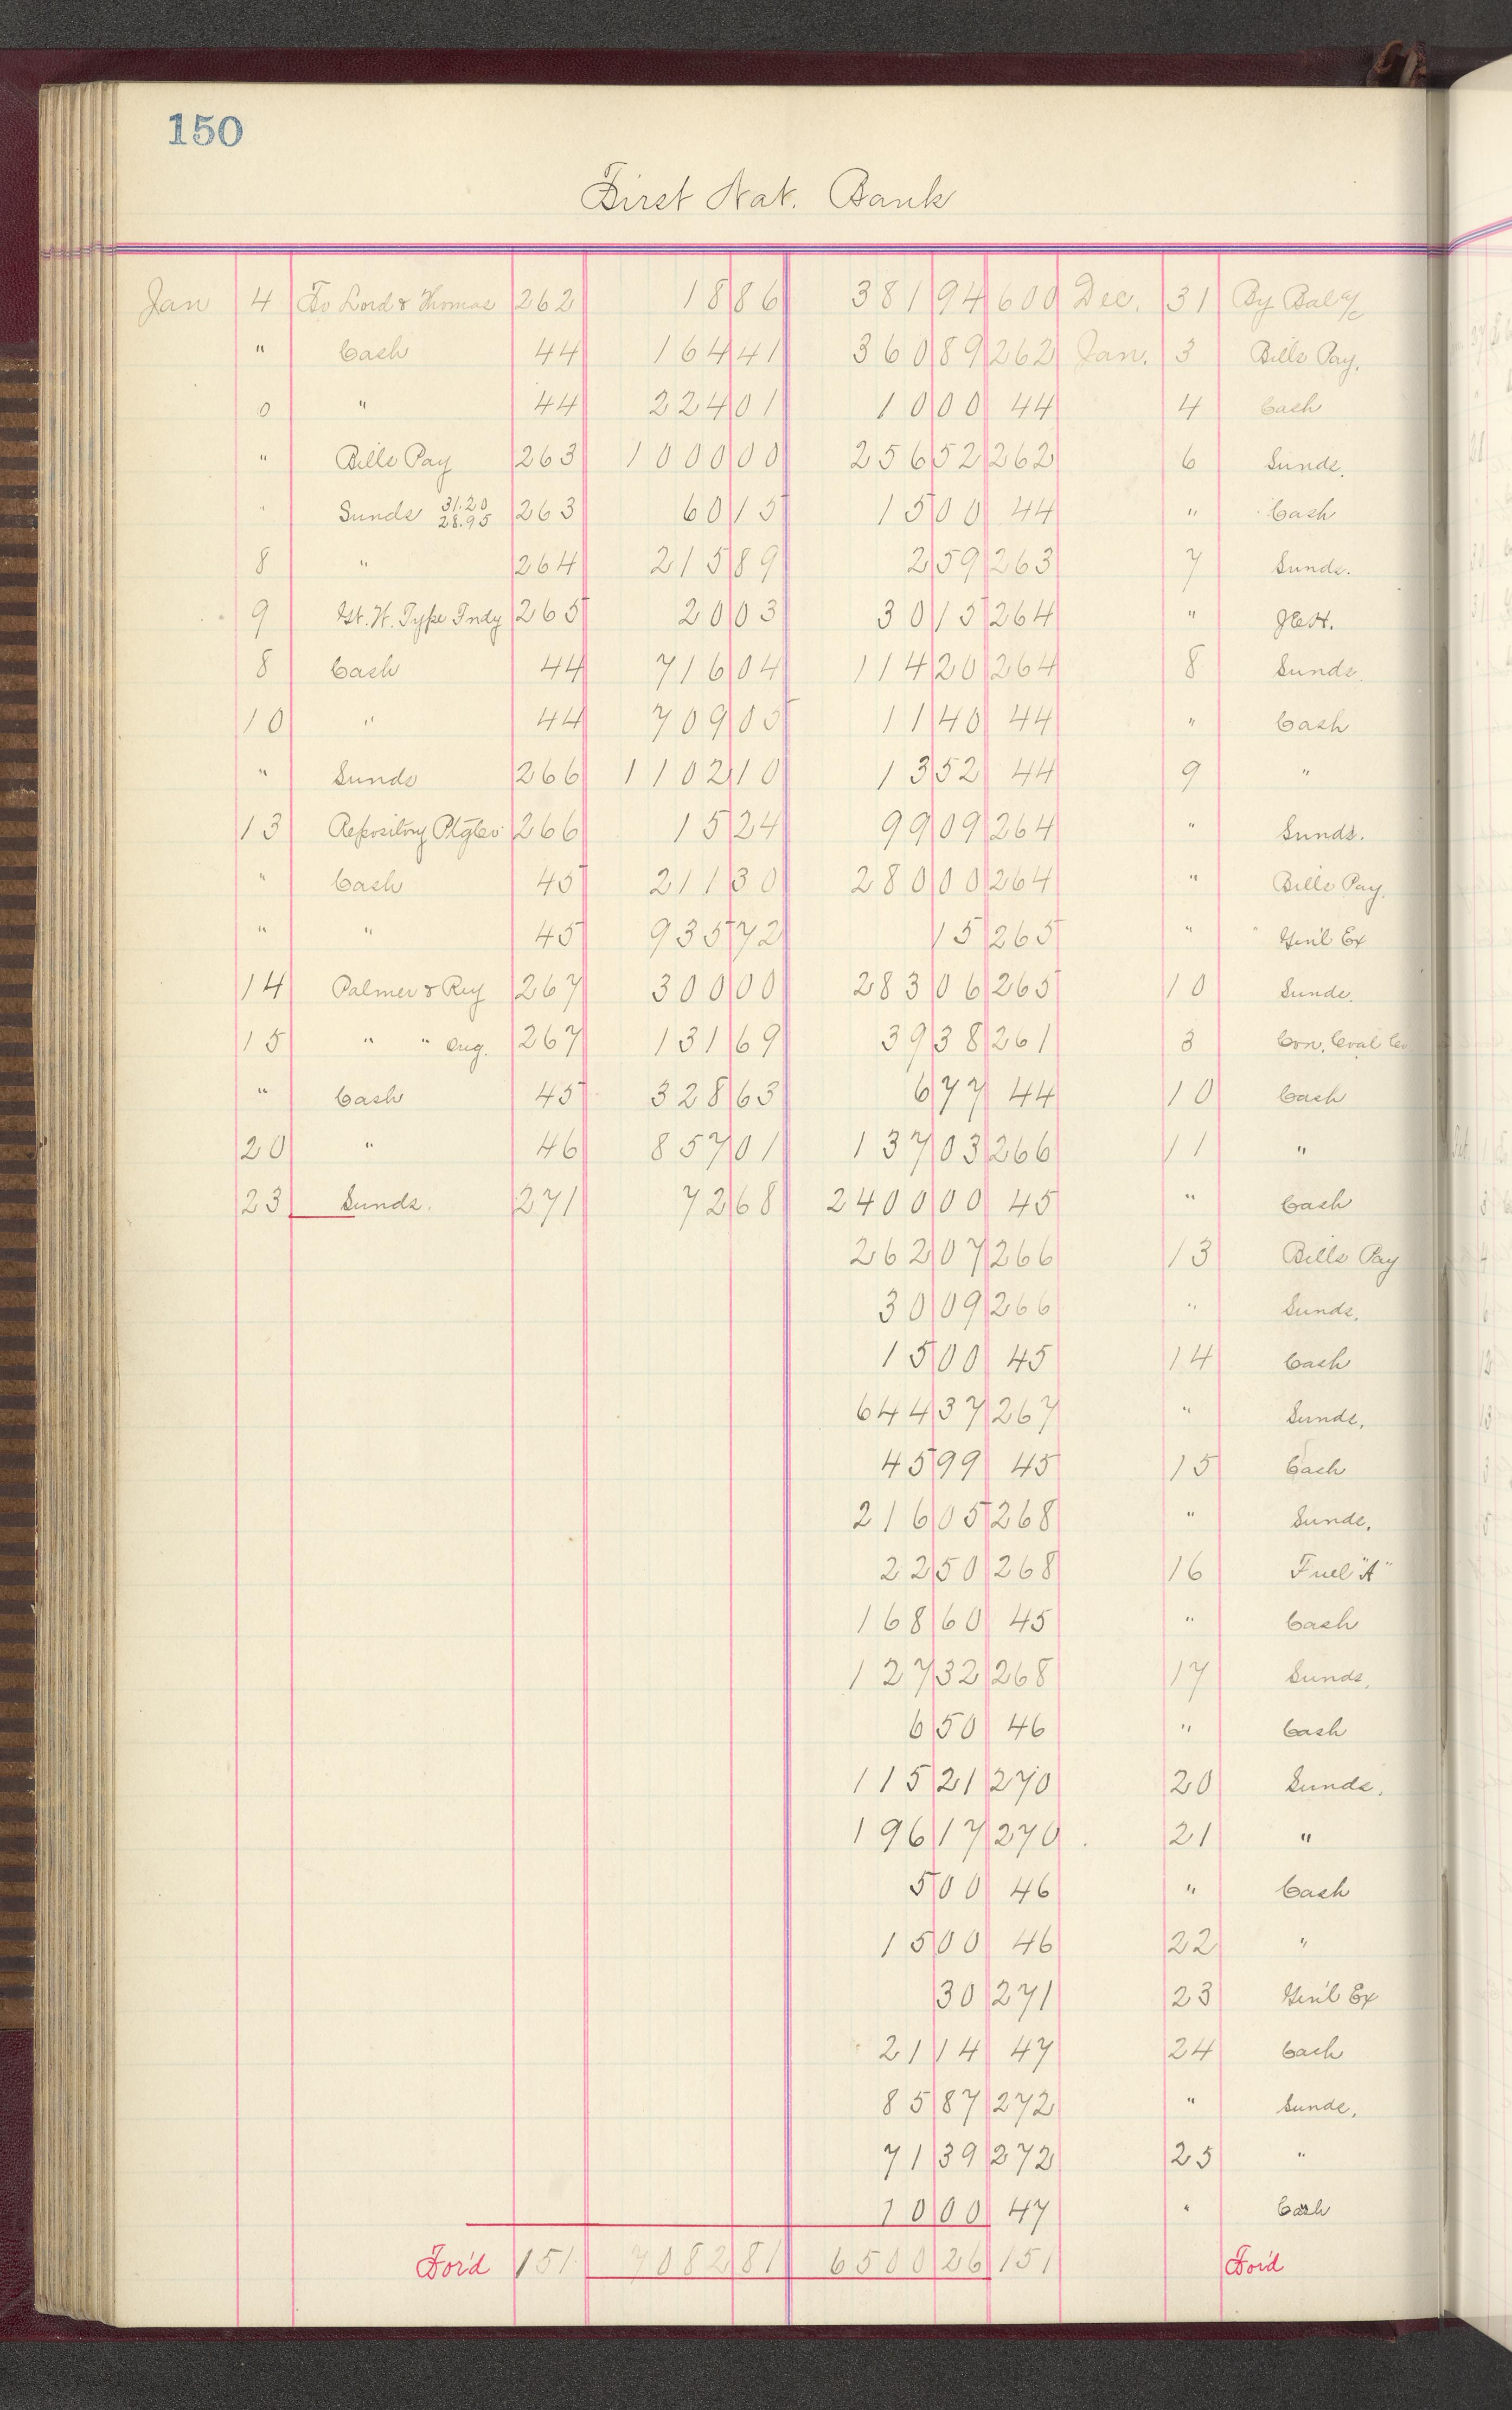 150
First Nat. Bank
Jan 4 To Lord & Thomas 262 18 86 381 94 600 Dec. 31 By Bal a/c
" Cash 44 164 41 360 89 262 Jan. 3 Bills Pay.
0 " 44 224 01 10 00 44 4 Cash
" Bills Pay 263 1000 00 256 52 262 6 Sunds.
" Sunds 31.20 28.95 263 60 15 15 00 44 " Cash
8 " 264 215 89 2 59 263 7 Sunds.
9 Gt. W. Type Fndy 265 20 03 30 15 264 " J.C.H.
8 Cash 44 716 04 114 20 264 8 Sunds.
10 " 44 709 05 11 40 44 " Cash
" Sunds 266 1102 10 13 52 44 9 "
13 Repository Ptg Co. 266 15 24 99 09 264 " Sunds.
" Cash 45 211 30 280 00 264 " Bills Pay.
" " 45 935 72 15 265 " Gen'l Ex
14 Palmer & Rey 267 300 00 283 06 265 10 Sunds.
15 " " Aug. 267 131 69 39 38 261 3 Con. Coal Co
" Cash 45 328 63 6 77 44 10 Cash
20 " 46 857 01 137 03 266 11 "
23 Sunds. 271 72 68 2400 00 45 " Cash
262 07 266 13 Bills Pay
30 09 266 " Sunds.
15 00 45 14 Cash
644 37 267 " Sunds.
45 99 45 15 Cash
216 05 268 " Sunds.
22 50 268 16 Fuel "A"
168 60 45 " Cash
127 32 268 17 Sunds.
6 50 46 " Cash
115 21 270 20 Sunds.
196 17 270 21 "
5 00 46 " Cash
15 00 46 22 "
30 271 23 Gen'l Ex
21 14 47 24 Cash
85 87 272 " Sunds.
71 39 272 25 "
10 00 47 " Cash
For'd 151 7082 81 6500 26 151 For'd